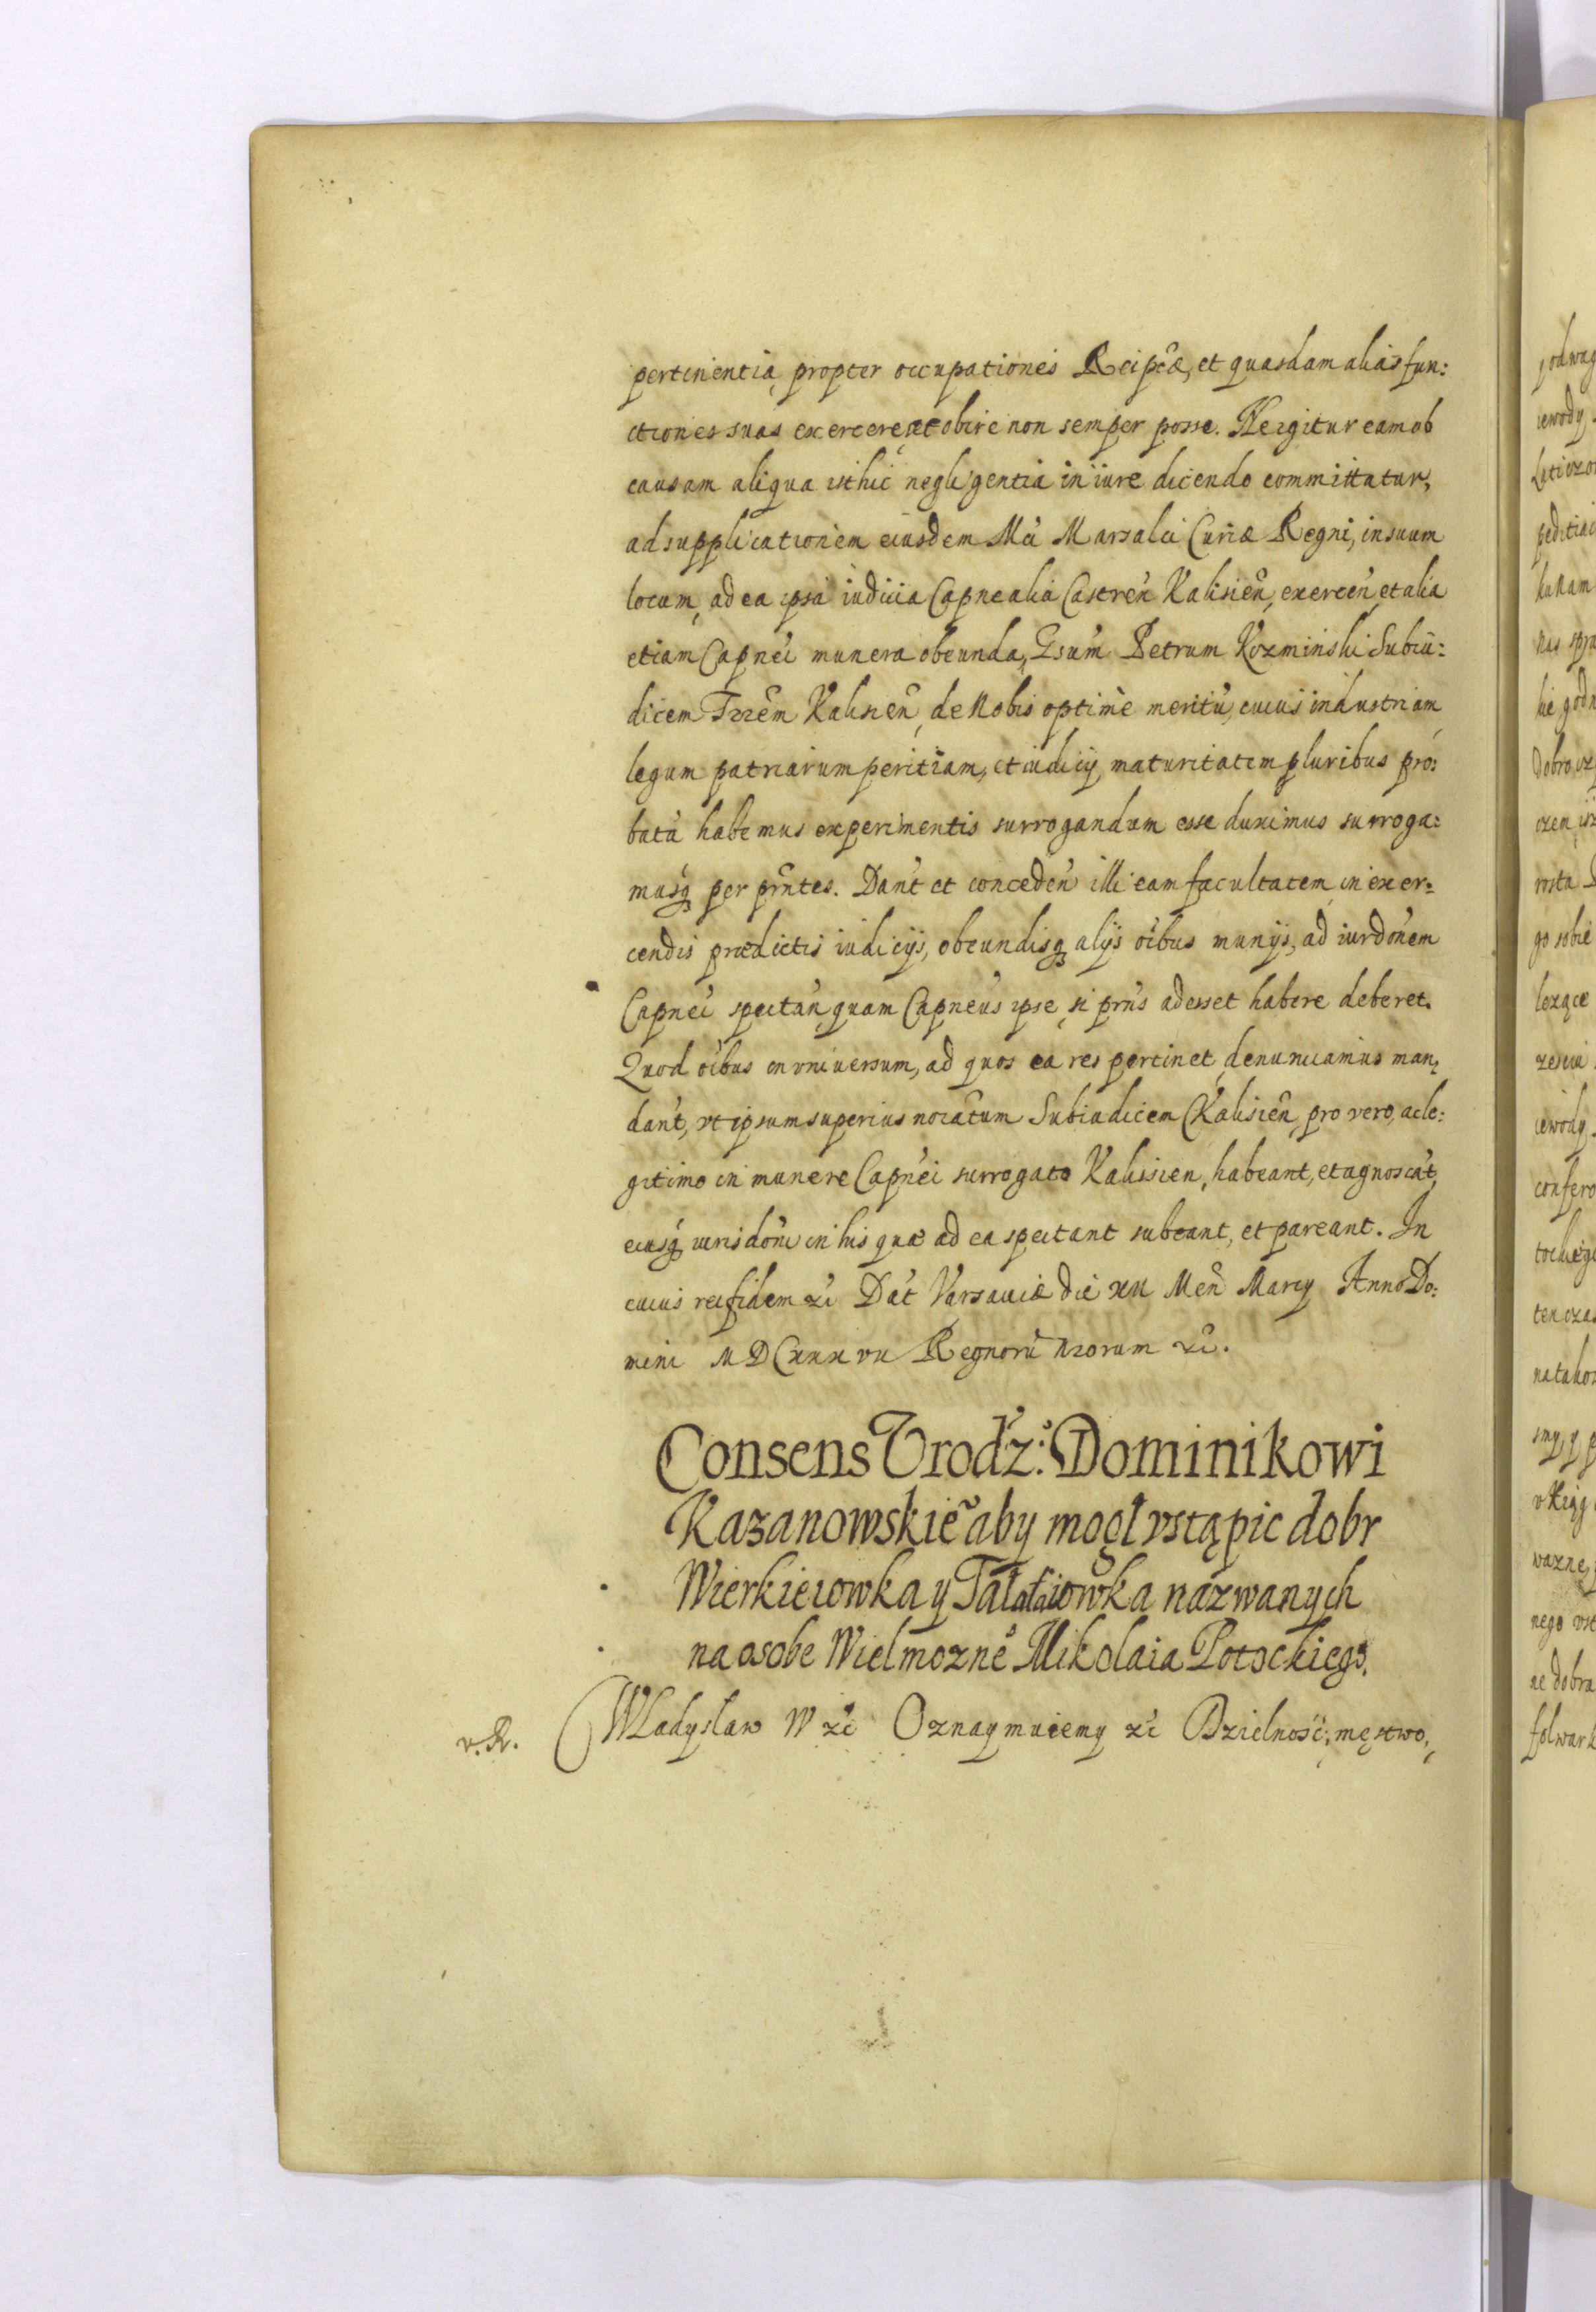 pertinentia, propter occupationes Reipcæ, et quasdam alias fun:
ctiones suas exercere, et obire non semper posse. Ne igitur eam ob
causam aliqua isthic negligentia in iure dicendo committatur,
ad supplicationem eiusdem Mci Marsalci Curiæ Regni, in suum
locum, ad ea ipsa iudicia Capnealia Castren Kalisien, exercen, et alia
etiam Capnei munera obeunda, Gsum Petrum Kozminski Subiu:
dicem Trrem Kalisien, de Nobis optime meritu, cuius industriam,
legum patriarum peritiam, et iudicij maturitatem pluribus pro:
bata habemus experimentis surrogandum esse duximus surroga:
musq per pñtes. Dant et conceden illi eam facultatem in exer:
cendis prædictis iudicijs, obeundisq alijs oibus munijs, ad iurdonem
Capnei spectan, quam Capneus ipse, si prns adesset habere deberet.
Quod oibus in vniuersum, ad quos ea res pertinet, denunciamus man,
dant, vt ipsum superius noiatum Subiudicem Kalisien, pro vero, ac le:
gitimo in munere Capnei surrogato Kalissien, habeant, et agnoscat,
eiusq iurisdoni in his quæ ad ea spectant subeant, et pareant. In
cuius rei fidem zc Dat Varsauiæ die XII Men Marcy Anno Do:
mini MDCXXXVII Regnoru nrorum zc.
Consens Vrodz: Dominikowi
Kazanowskie aby mogł vstąpic dobr
Wierkieiowka y Tałałaiowka nazwanych
na osobe Wielmozne Mikolaia Potockiego.
v. R. Wladyslaw IV zc Oznaymuiemy zc Dzielność, męstwo,
podwag
iewody
peditiac
kukam
nas spra
kie godn
Dobro
rosta
go sobie
lezące
iewody
confero
ten czas
natakos
smy, y p
wazne,
nego vst
ne dobra
folwark